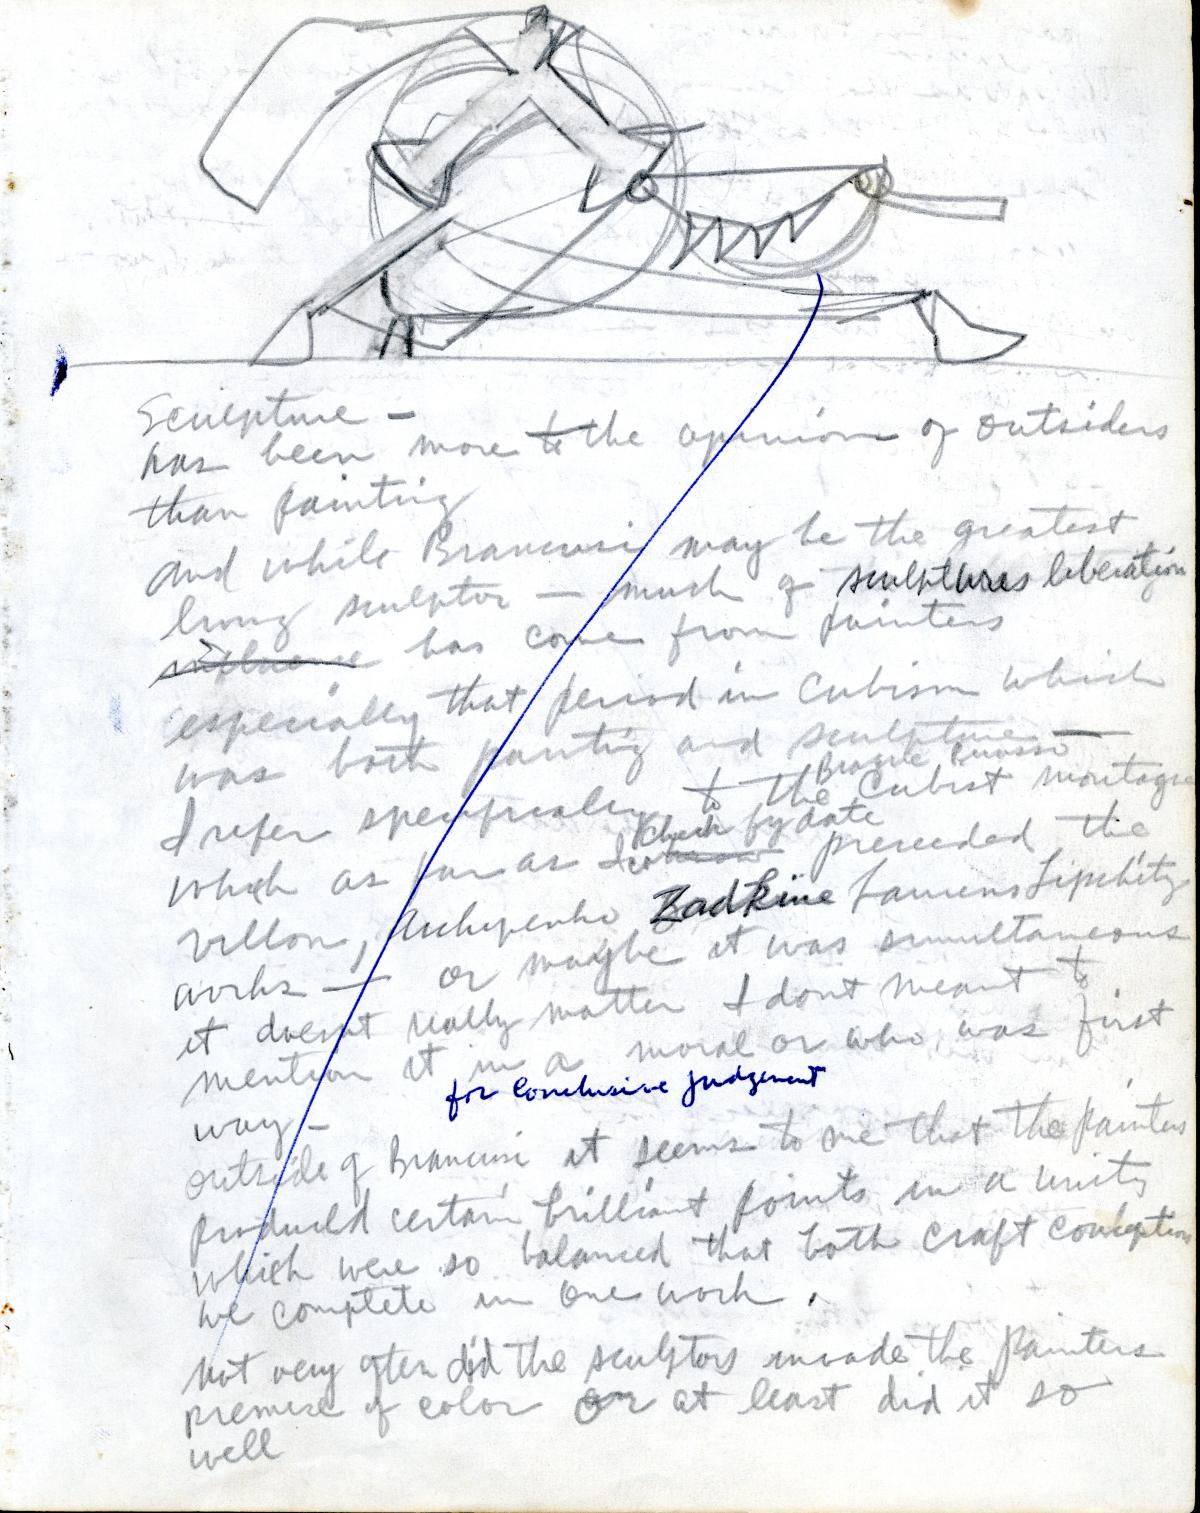 Sculpture –
has been more to the opinion of outsiders
than painting
and while Brancusi may be the greatest
living sculptor – much of sculptures liberation
influence has come from painters
especially that period in Cubism which
was both painting and sculpture –
Braque Picasso
I refer specifically to the Cubist montage
check by date
which as far as I know preceeded the
Villon, Archipenko Zadkine Laurens Lipchitz
works – or maybe it was simultaneous
it doesnt really matter I dont meant to
mention it in a moral or who was first
for conclusive judgement
way –
outside of Brancusi it seems to me that the painters
produced certain brilliant points in a unity
which were so balanced that both craft conception
we complete in one work.
Not very often did the sculptors invade the painters
premise of color or at least did it so
well